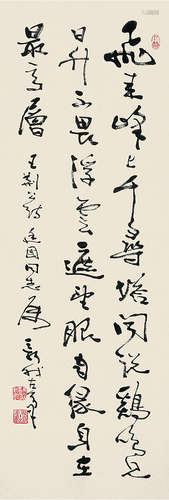 飛来峰上千尋塔聞說雞鳴見
日升不畏浮雲遮望眼自緣身在
最高層 王荆公詩 遂园同志属